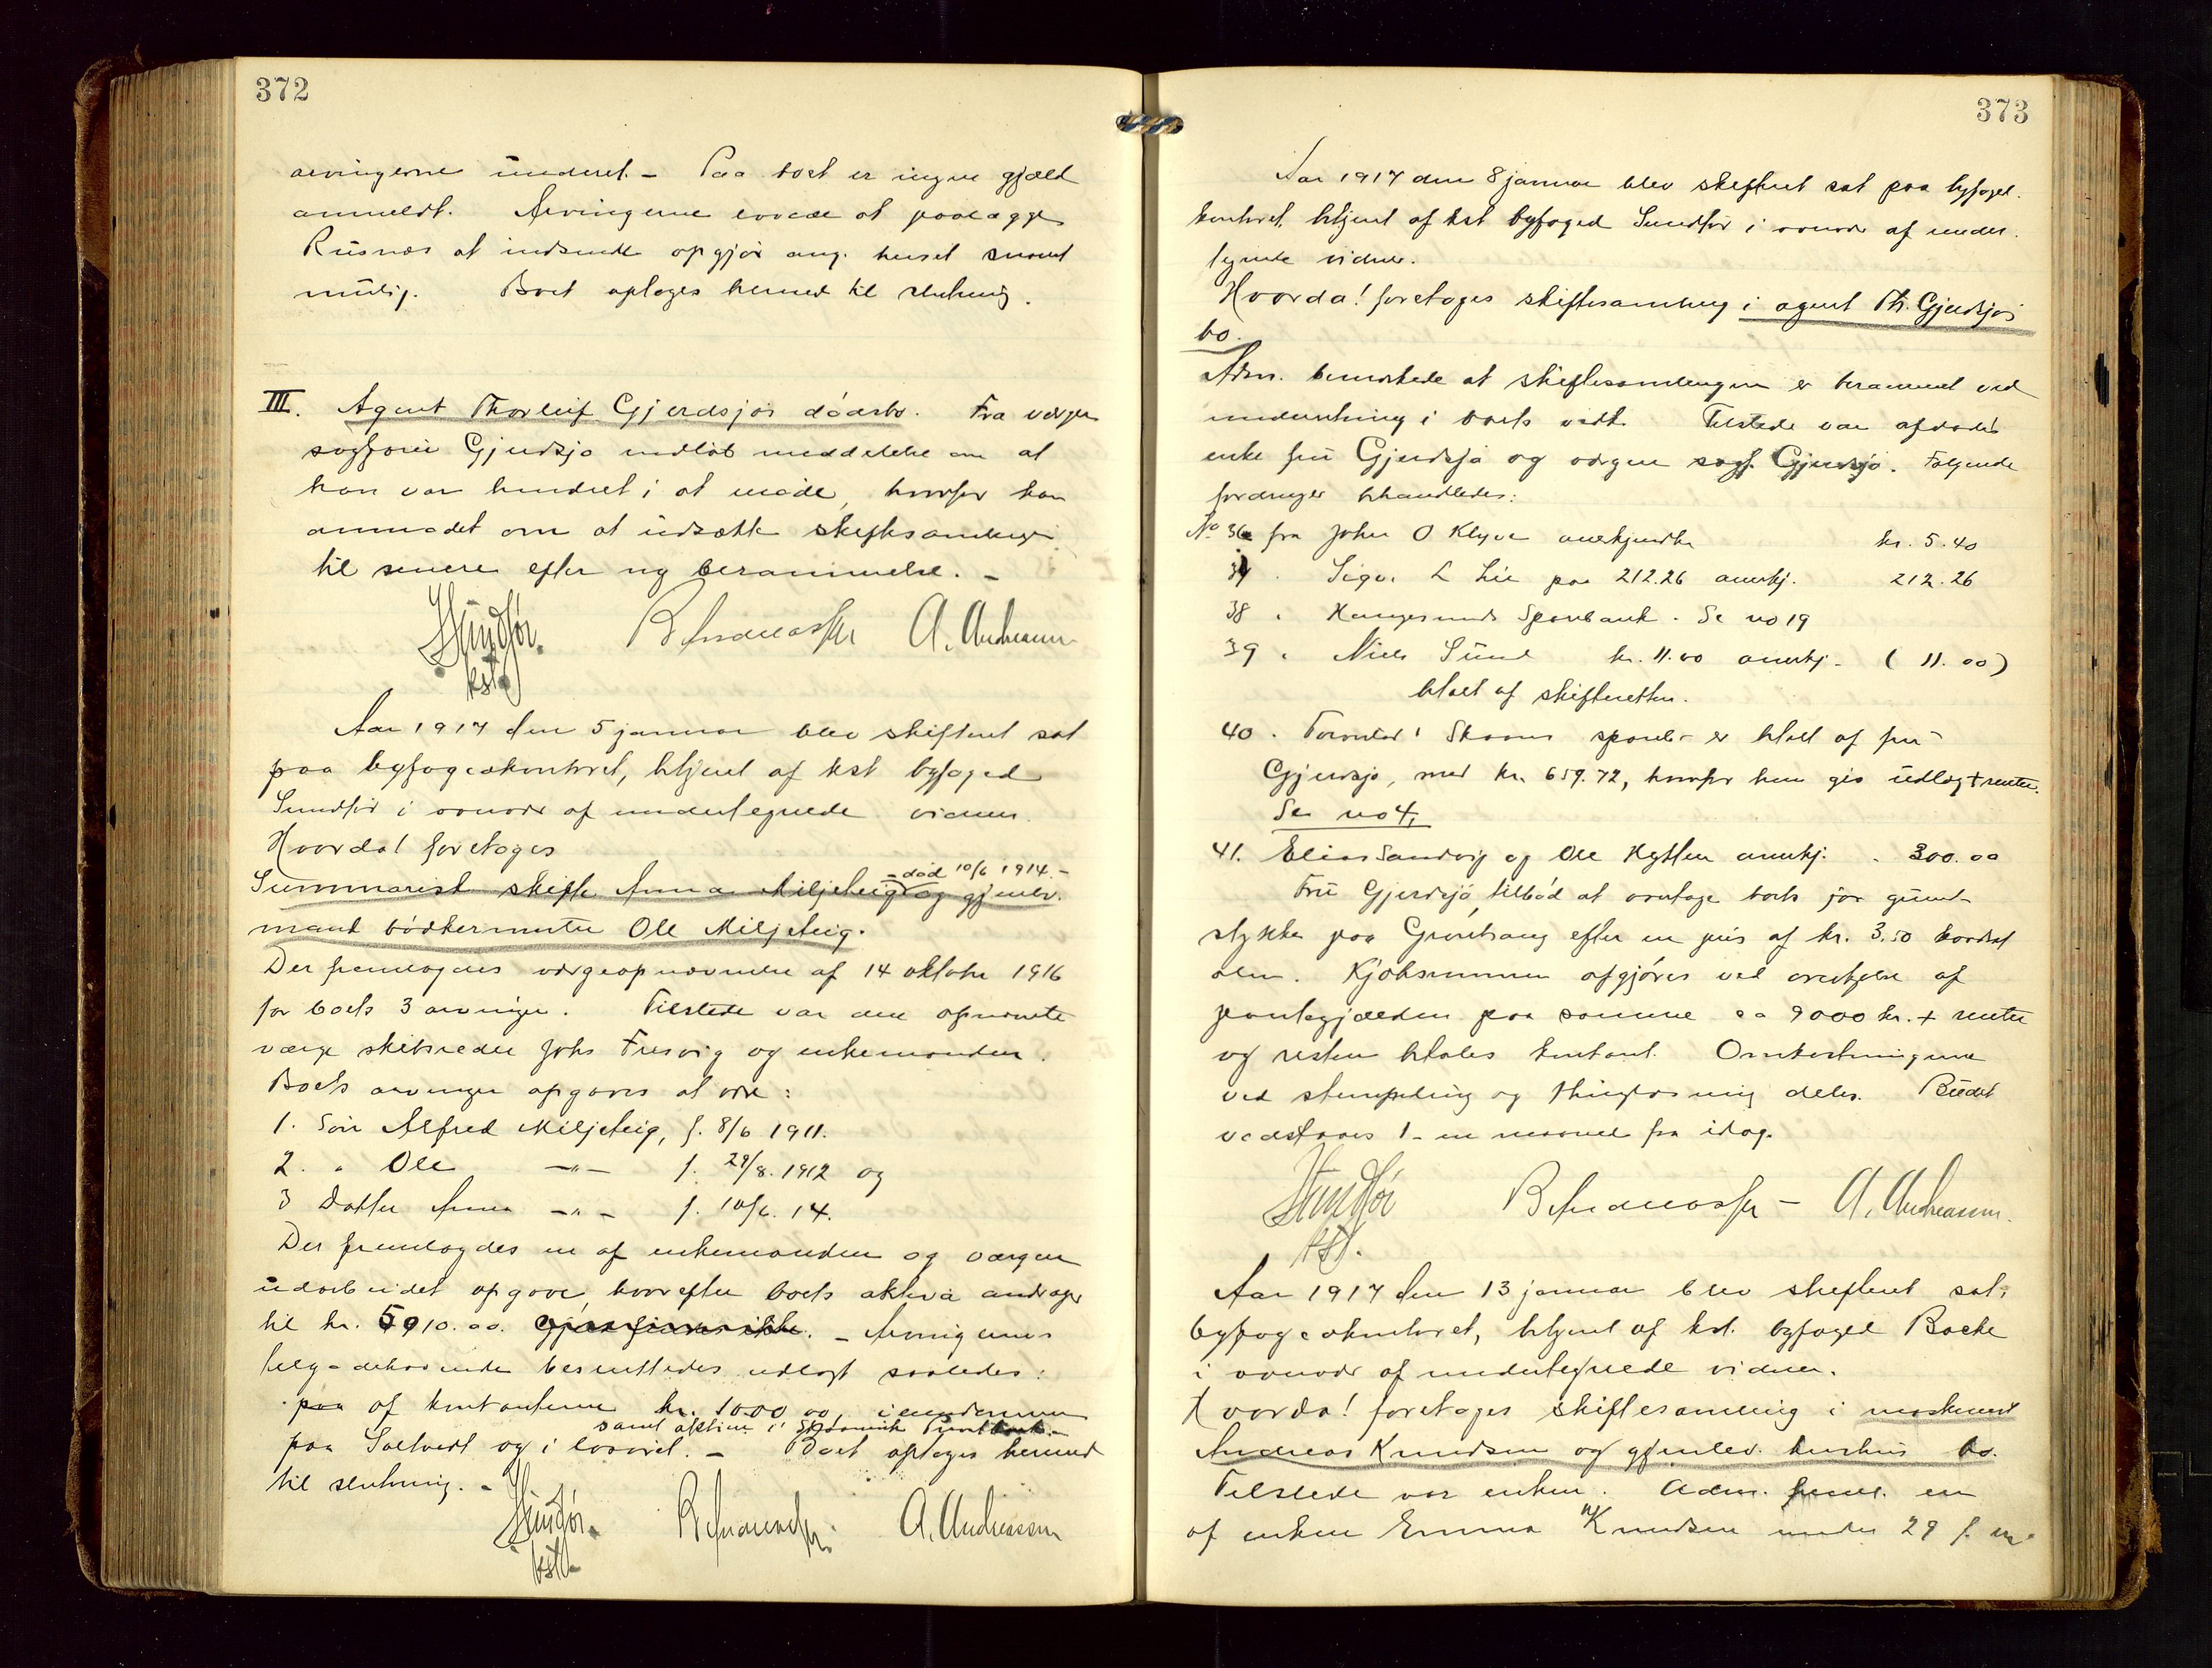 372
arvingerne underet. – Paa boet er ingen gjæld
anmeldt. Arvingerne lovede at paalægge
Rusnæs at indsende opgjør ang. huset snarest
mulig. Boet optoges hermed til slutning.
III. Agent Thorleif Gjerdsjøs dødsbo. Fra værgen
sagfører Gjerdsjø indløb meddelelse om at
han var hindret i at møde, hvorfor han
anmodet om at udsætte skiftesamlingen
til senere efter ny berammelse. –
Sundfør. B Andreassen A. Andreassen
kst.
Aar 1917 den 5 januar blev skifteret sat
paa byfogedkontoret, betjent af kst byfoged
Sundfør i overvær af undertegnede vidner.
Hvorda! foretoges
– død 10/6 1914. –
Summarisk skifte Anna Miljeteig og gjenlev.
mand bødkermester Ole Miljeteig.
Der fremlagdes værgeopnævnelse af 14 oktober 1916
for boets 3 arvinger. Tilstede var den opnævnte
værge skibsreder Johs Tresvig og enkemanden.
Boets arvinger opgaves at være:
1. Søn Alfred Miljeteig, f. 8/6 1911.
2. " Ole –"– f. 29/8. 1912 og
3 Datter Anna –"– f. 10/6. 14.
Der fremlagdes en af enkemanden og værgen
udarbeidet opgave, hvorefter boets aktiva andrager
til kr. 5910.00. Gjæld findes ikke. – Arvingernes
tilgodehavende besluttedes udlagt saaledes:
paa af kontanterne kr. 1000.00, i eiendommen
samt aktier i
paa Saltveit og i løsøret. – Boet optoges hermed
til slutning. –
Sundfør. B Andreassen. A. Andreassen
kst.
373
Aar 1917 den 8 januar blev skifteret sat paa byfoged.
kontoret, betjent af kst byfoged Sundfør i overvær af under.
tegnede vidner.
Hvorda! foretoges skiftesamling i agent Th. Gjerdsjøs
bo.
Adm. bemerkede at skiftesamlingen er berammet ved
underretning i boets vedk. Tilstede var afdødes
enke fru Gjerdsjø og værgen sagf. Gjerdsjø. Følgende
fordringer behandledes:
No 36 fra John O Klyve anerkjendte kr. 5.40
37 . Sigv. L Lie paa 212.26 anerkj. 212.26
38 " Haugesunds Sparebank. Se no 19
39 " Niels Sund kr. 11.00 anerkj. – (11.00)
betalt af skifteretten.
40 . Torvestad & Skaare spareb. er betalt af fru
Gjerdsjø, med kr. 659.72, hvorfor hun gis udlæg + renter.
Se no 4.
41. Elias Sandvig og Ole Hytten anerkj. . 300.00
Fru Gjerdsjø, tilbød at overtage boets jor grund-
stykke paa Gronehaug efter en pris af kr. 3.50 kvadrat
alen. Kjøbsummen afgjøres ved overtagelse af
pantegjælden paa samme ca 9000 kr. + renter
og resten betales kontant. Omkostningerne
ved stempling og thinglæsning deles. Budet
vedstaaes 1 – en maaned fra idag.
Sundfør B Andreassen – A. Andreassen.
kst.
Aar 1917 den 13 januar blev skifteret sat,
byfogedkontoret, betjent af kst. byfoged Bache
i overvær af undertegnede vidner.
Hvorda! foretoges skiftesamling i maskinist
Andreas Knudsen og gjenlev. hustrus bo.
Tilstede var enken. Adm. freml. en
af enken Emma Knudsen under 29 f. m.